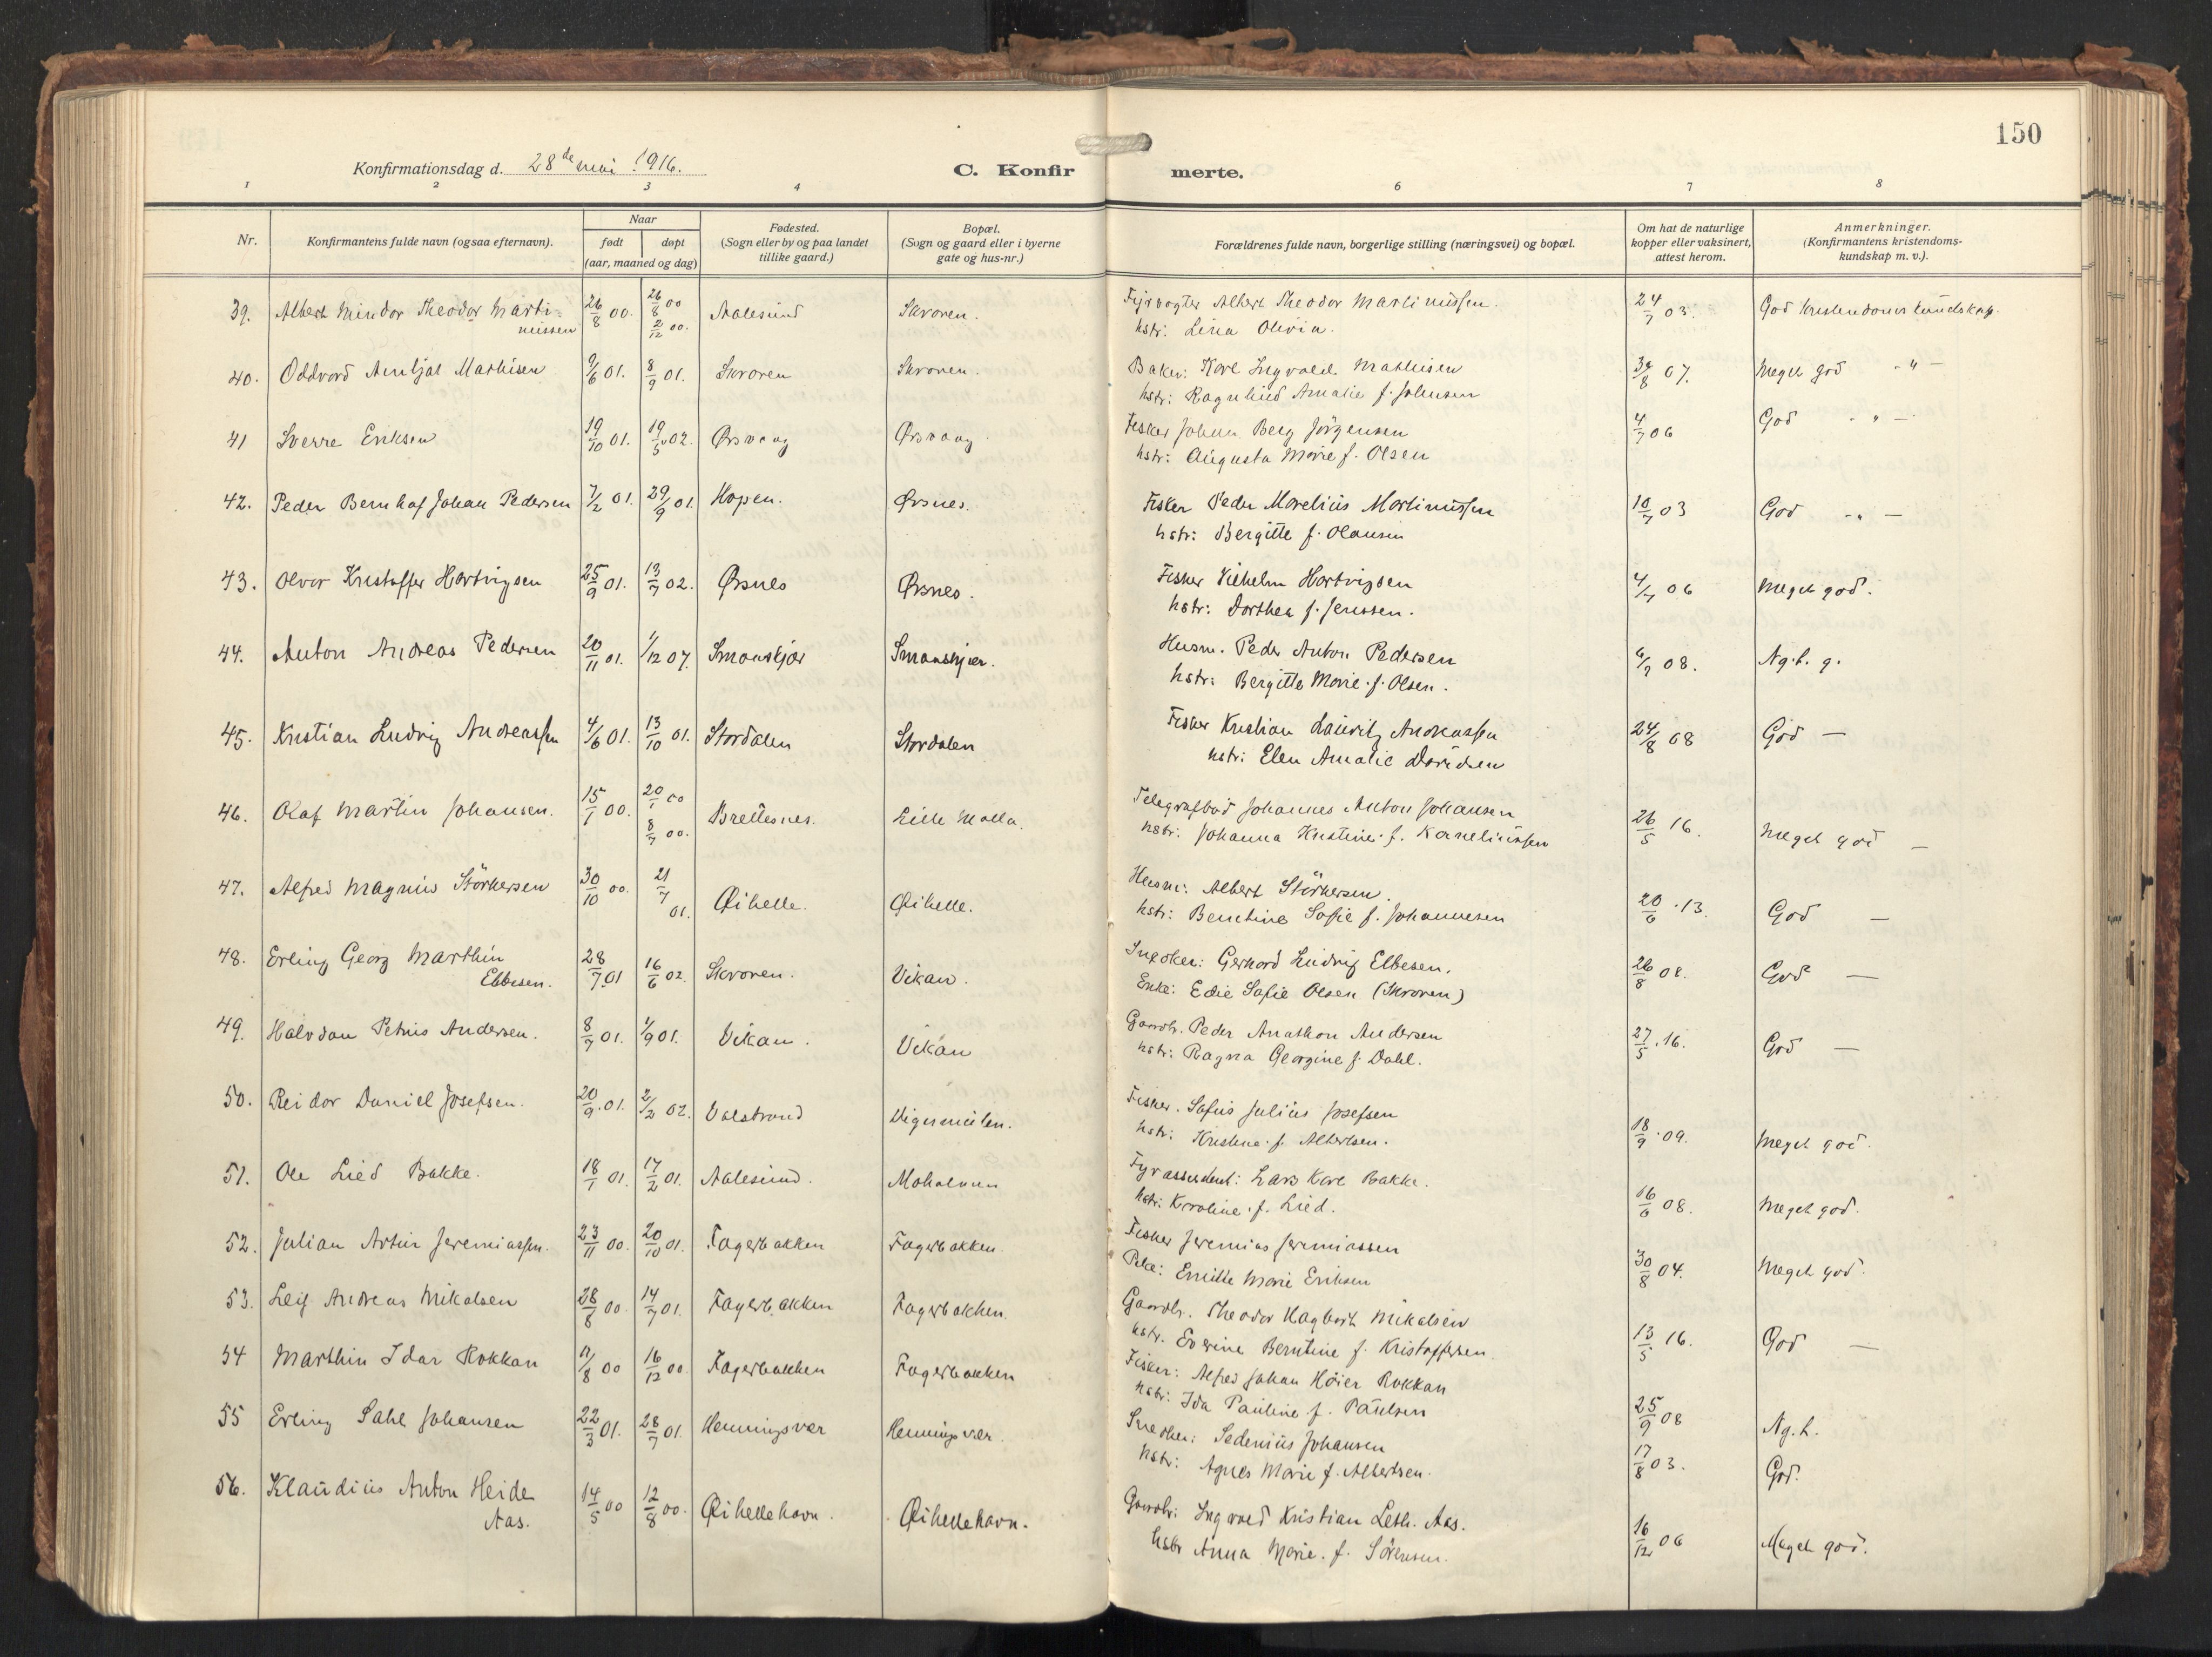 150
Konfirmationsdag d. 28de mai 1916.
C. Konfirmerte.
1 2 3 4 6 7 8
Nr.
Konfirmantens fulde navn (ogsaa efternavn).
Naar
født
døpt
(aar, maaned og dag)
Fødested.
(Sogn eller by og paa landet
tillike gaard.)
Bopæl.
(Sogn og gaard eller i byerne
gate og hus-nr.)
Forældrenes fulde navn, borgerlige stilling (næringsvei) og bopæl.
Om hat de naturlige
kopper eller vaksinert,
attest herom.
Anmerkninger.
(Konfirmantens kristendoms-
kundskap m. v.).
39. Albert Mindor Theodor Marti= 26/8 00. 26/8 00 Aalesund Skroven. Fyrvogter Albert Theodor Martinussen. 24/7 03. God kristendomskundskap.
nussen 2/12 00. hstr: Lina Olivia.
40. Oddvard Arnljot Mathisen 9/6 01. 8/9 01. Skroven Skroven. Baker: Karl Ingvald Mathisen 30/8 07. Meget god -"-
hstr: Ragnhild Amalie f. Johnsen
41 Sverre Eriksen 19/10 01. 19/5 02. Ørsvaag Ørsvaag. Fisker Johan Berg Jörgensen 4/7 06 God -"-
hstr: Augusta Marie f. Olsen
42. Peder Bernhof Johan Pedersen 7/2 01. 29/9 01. Hopen. Ørsnes. Fisker Peder Marelius Martinussen 10/7 03 God -"-
hstr: Bergitte f. Olausen
43. Olvar Kristoffer Hartvigsen 25/9 01. 13/7 02. Ørsnes Ørsnes. Fisker Vilhelm Hartvigsen 4/7 06 Meget god.
hstr: Dorthea f. Jenssen.
44. Anton Andreas Pedersen 20/11 01. 1/12 07. Smaaskjær Smaaskjær. Husm. Peder Anton Pedersen 6/9 08. Ng. h. g.
hstr: Bergitte Marie f. Olsen.
45. Kristian Ludvig Andreassen 4/6 01. 13/10 01. Stordalen Stordalen Fisker Kristian Lauritz Andreassen 24/8 08 God -
hstr: Elen Amalie Davidsen
46. Olaf Martin Johansen. 15/1 00. 20/1 00 Brettesnes. Lille Molla. Telegrafbud Johannes Anton Johansen 26/5 16. Meget god -
8/7 00. hstr: Johanna Kristine f. Korneliussen
47. Alfred Magnus Störkersen 30/10 00. 21/7 01. Øihelle. Øihelle. Husm: Albert Störkersen 20/6 13. God -
hstr: Berntine Sofie f. Johannesen
48. Erling Georg Marthin 28/7 01 16/6 02. Skroven. Vikan. Snedker: Gerhard Ludvig Ebbesen. 26/8 08. God -
Ebbesen. Enke: Edie Sofie Olsen (Skroven)
49. Halvdan Petrus Andersen. 8/7 01. 1/9 01. Vikan. Vikan Gaardbr. Peder Anathon Andersen 27/5 16. God -
hstr: Ragna Georgine f. Dahl.
50. Reidar Daniel Josefsen. 20/9 01. 2/2 02. Valstrand Digermulen. Fisker. Sofus Julius Josefsen 18/9 09. Meget god.
hstr: Kristine f. Albertsen.
51. Ole Lied Bakke. 18/1 01. 17/2 01. Aalesund. Moholmen Fyrassistent: Lars Kare Bakke. 16/6 08. Meget god.
hstr: Karoline f. Lied.
52. Julian Artur Jeremiassen. 23/11 00. 20/10 01. Fagerbakken Fagerbakken. Fisker Jeremias Jeremiassen 30/8 04. Meget god.
Pike: Emilie Marie Eriksen
53. Leif Andreas Mikalsen 28/8 00. 14/7 01. Fagerbakken Fagerbakken. Gaardbr. Theodor Hagbart Mikalsen 13/5 16. God -
hstr. Everine Berntine f. Kristoffersen.
54 Marthin Idar Rokkan 11/8 00 16/12 00. Fagerbakken Fagerbakken Fisker: Alfred Johan Höier Rokkan 25/9 08 Ng. h.
hstr: Ida Pauline f. Paulsen
55 Erling Sahl Johansen 22/3 01. 28/7 01. Henningsvær Henningsvær. Snedker: Sedenius Johansen 17/8 03. God.
hstr: Agnes Marie f. Albertsen.
56. Klaudius Anton Heide 14/5 00 12/8 00. Øihellehavn. Øihellehavn. Gaardbr: Ingvald Kristian Leth. Aas. 16/12 06 Meget god.
Aas. hstr Anna Marie. f. Sörensen.